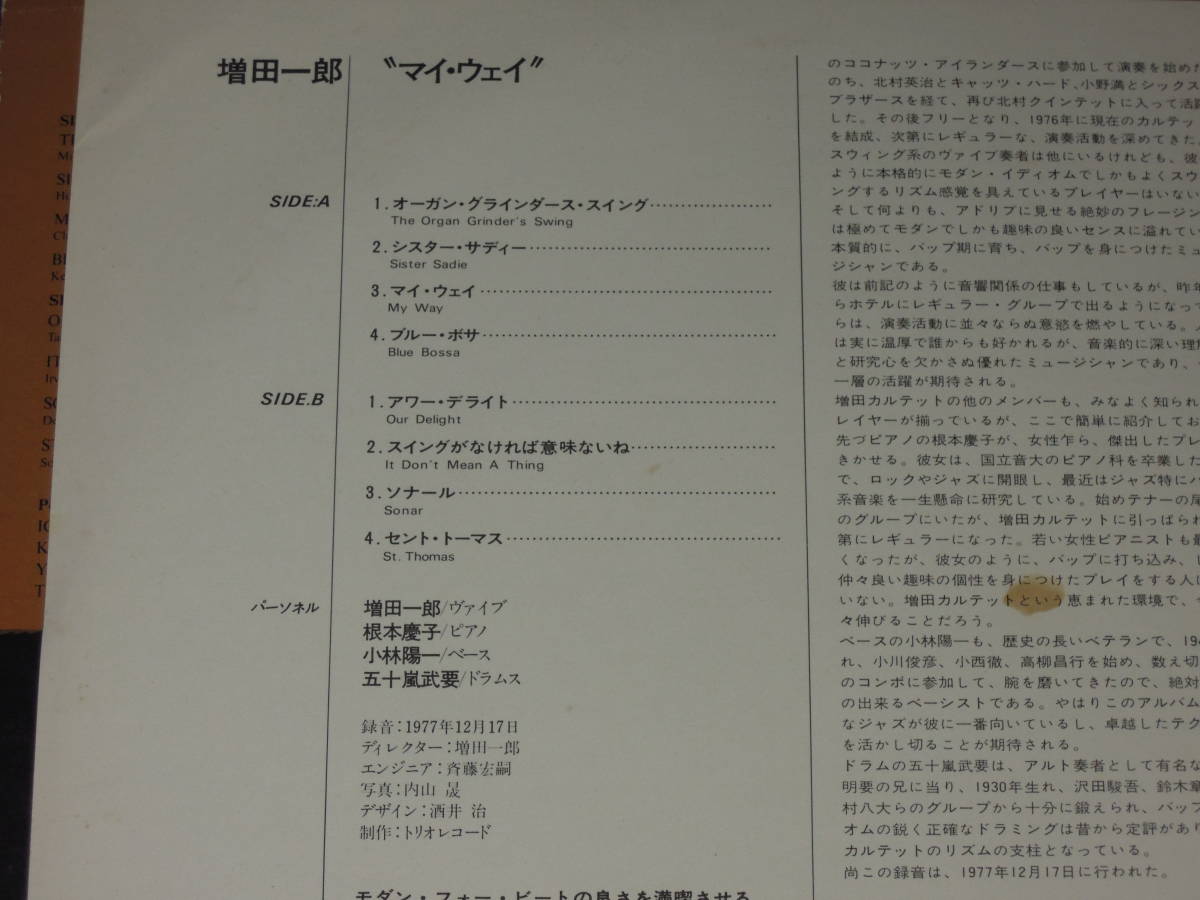 増田一郎
〝マイ・ウェイ〟
SIDE:A
1. オーガン・グラインダース・スイング
The Organ Grinder's Swing
2. シスター・サディー
Sister Sadie
3. マイ・ウェイ
My Way
4. ブルー・ボサ
Blue Bossa
SIDE.B
1. アワー・デライト
Our Delight
2. スイングがなければ意味ないね
It Don't Mean A Thing
3. ソナール
Sonar
4. セント・トーマス
St. Thomas
パーソネル
増田一郎/ヴァイブ
根本慶子/ピアノ
小林陽一/ベース
五十嵐武要/ドラムス
録音:1977年12月17日
ディレクター:増田一郎
エンジニア:斉藤宏嗣
写真:内山 晟
デザイン:酒井 治
制作:トリオレコード
モダン・フォー・ビートの良さを満喫させる
のココナッツ・アイランダースに参加して演奏を始めた
のち、北村英治とキャッツ・ハード、小野満とシックス
ブラザースを経て、再び北村クインテットに入って活躍
した。その後フリーとなり、1976年に現在のカルテッ
を結成、次第にレギュラーな、演奏活動を深めてきた。
スウィング系のヴァイブ奏者は他にいるけれども、彼
ように本格的にモダン・イディオムでしかもよくスウ
ングするリズム感覚を具えているプレイヤーはいない
そして何よりも、アドリブに見せる絶妙のフレージン
は極めてモダンでしかも趣味の良いセンスに溢れてい
本質的に、バップ期に育ち、バップを身につけたミュ
ジシャンである。
彼は前記のように音響関係の仕事もしているが、昨年
らホテルにレギュラー・グループで出るようになって
らは、演奏活動に並々ならぬ意慾を燃やしている。
は実に温厚で誰からも好かれるが、音楽的に深い理解
と研究心を欠かさぬ優れたミュージシャンであり、
一層の活躍が期待される。
増田カルテットの他のメンバーも、みなよく知られ
レイヤーが揃っているが、ここで簡単に紹介してお
先づピアノの根本慶子が、女性乍ら、傑出したプレ
きかせる。彼女は、国立音大のピアノ科を卒業した
で、ロックやジャズに開眼し、最近はジャズ特にバ
系音楽を一生懸命に研究している。始めテナーの尾
のグループにいたが、増田カルテットに引っぱられ
第にレギュラーになった。若い女性ピアニストも最
くなったが、彼女のように、バップに打ち込み、し
仲々良い趣味の個性を身につけたプレイをする人は
いない。増田カルテットという恵まれた環境で、
々伸びることだろう。
ベースの小林陽一も、歴史の長いベテランで、19
れ、小川俊彦、小西徹、高柳昌行を始め、数え切
のコンボに参加して、腕を磨いてきたので、絶対
の出来るベーシストである。やはりこのアルバム
なジャズが彼に一番向いているし、卓越したテク
を活かし切ることが期待される。
ドラムの五十嵐武要は、アルト奏者として有名な
明要の兄に当り、1930年生れ、沢田駿吾、鈴木章
村八大らのグループから十分に鍛えられ、バップ
オムの鋭く正確なドラミングは昔から定評があり
カルテットのリズムの支柱となっている。
尚この録音は、1977年12月17日に行われた。